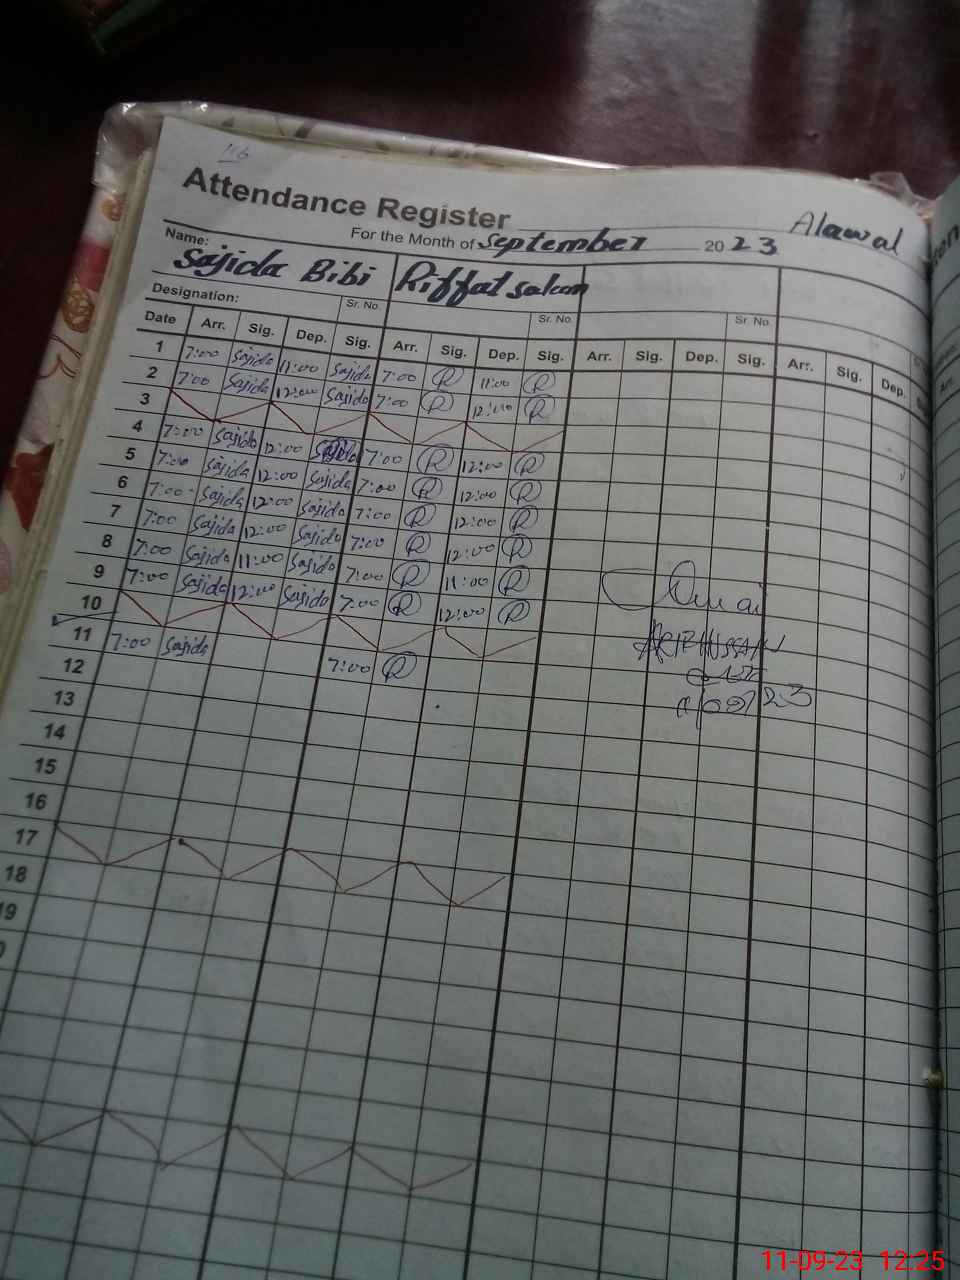 116
Attendance Register
Alawal
For the Month of September 2023
Name: Sajida Bibi Riffat salam
Designation: Sr. No. Sr. No. Sr. No.
Date Arr. Sig. Dep. Sig. Arr. Sig. Dep. Sig. Arr. Sig. Dep. Sig. Arr. Sig. Dep.
1 7:00 Sajida 11:00 Sajida 7:00 R 11:00 R
2 7:00 Sajida 12:00 Sajida 7:00 R 12:00 R
3
4 7:00 Sajida 12:00 Sajida 7:00 R 12:00 R
5 7:00 Sajida 12:00 Sajida 7:00 R 12:00 R
6 7:00 Sajida 12:00 Sajida 7:00 R 12:00 R
7 7:00 Sajida 12:00 Sajida 7:00 R 12:00 R
8 7:00 Sajida 11:00 Sajida 7:00 R 11:00 R
9 7:00 Sajida 12:00 Sajida 7:00 R 12:00 R
10
11 7:00 Sajida 7:00 R
12
13
14
15
16
17
18
19
11-09-23 12:25